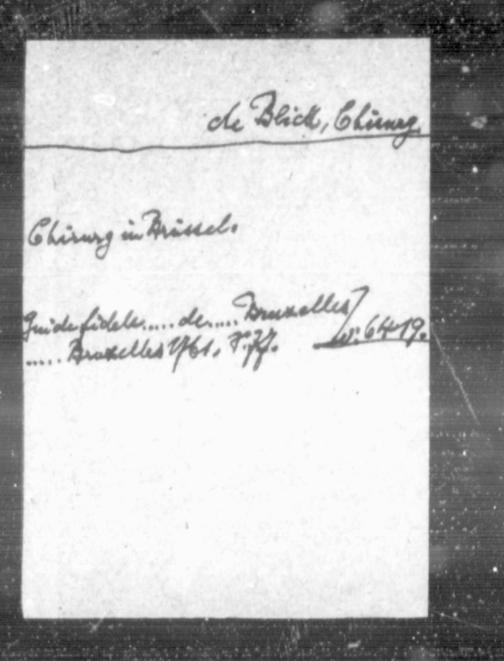 de Blick, Chirurg
Chirurg in Brüssel.
Guide fidele..... de..... Bruxelles
..... Bruxelles 1761. S. 77.